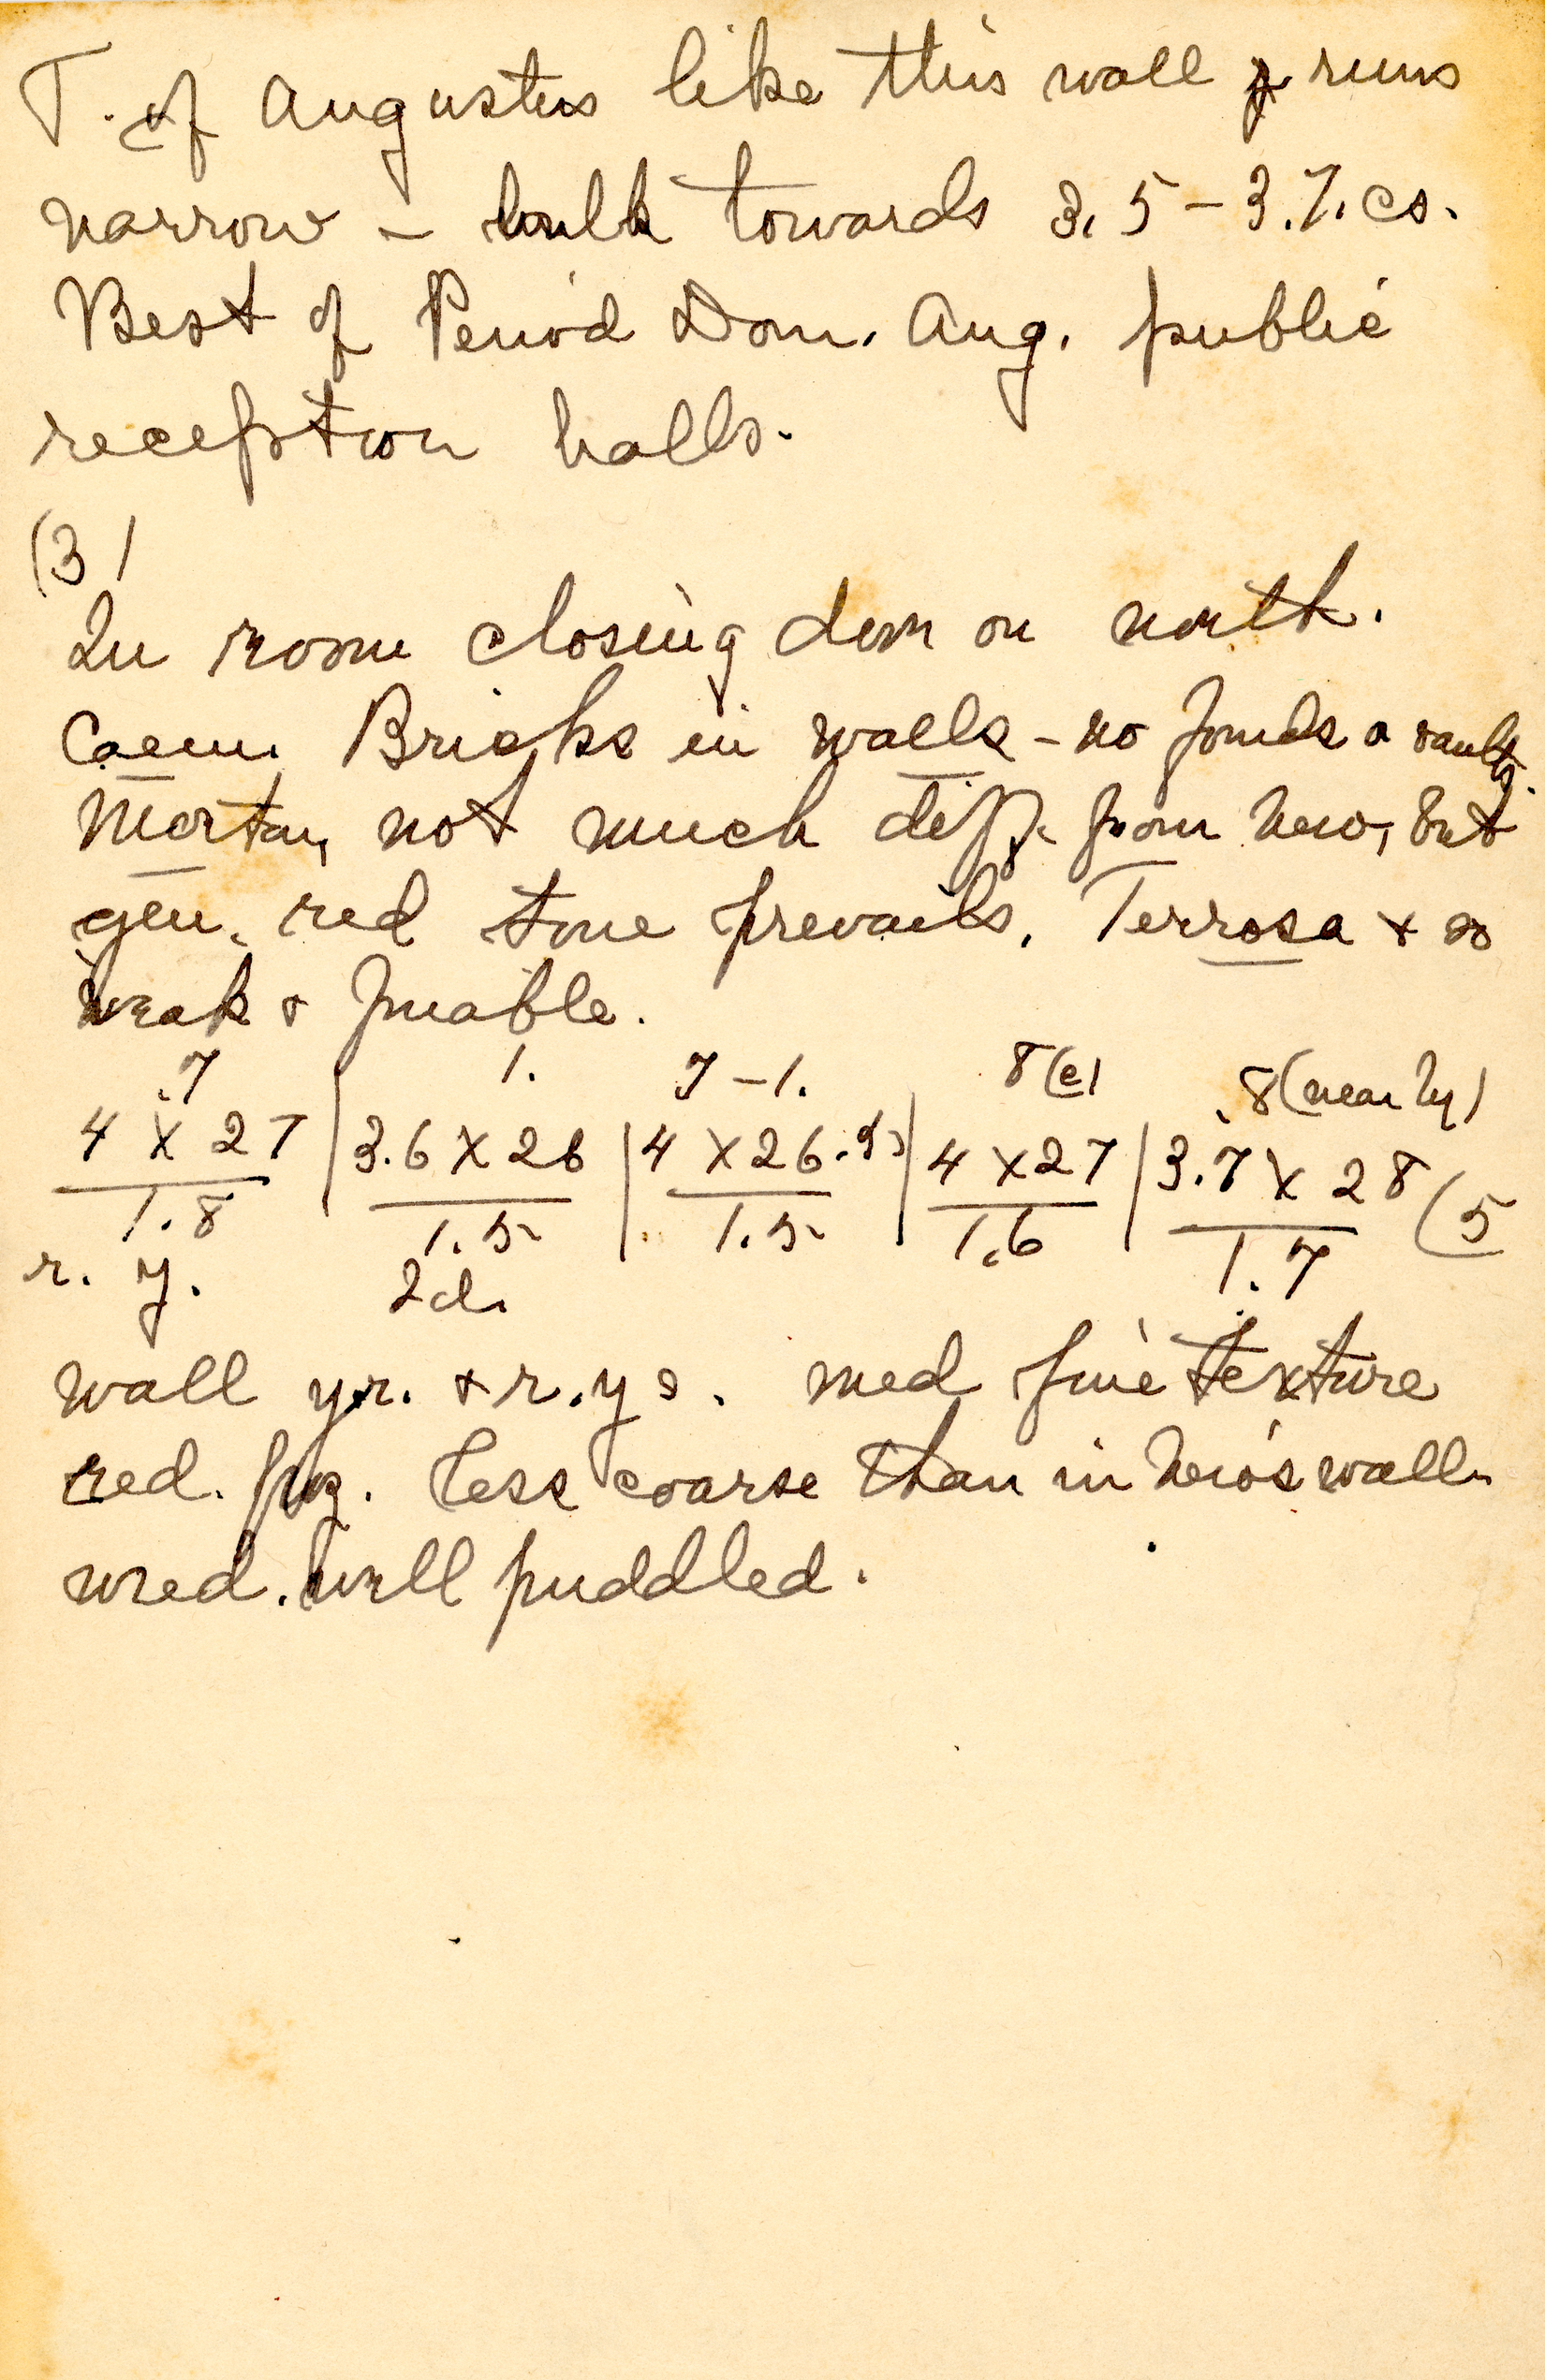 T. of Augustus like this wall & runs
narrow – bulk towards 3.5 – 3.7. cs.
Best of Period Dom. Aug. public
reception halls.
(3)
In room closing dom on north.
Caem. Bricks in walls – no founds o vaults.
Mortar, not much diff. from Nero, but
gen. red tone prevails. Terrosa & so
weak & friable.
.7 1. 7 – 1. 8(e) .8(nearly)
4 X 27 | 3.6 X 26 | 4 X 26.5 | 4 X 27 | 3.7 X 28 (5
1.8 1.5 1.5 1.6 1.7
r. y. 2d.
Wall yr. & r.ys. med fine texture
red. poz. less coarse than in Nero's wall.
med. well puddled.